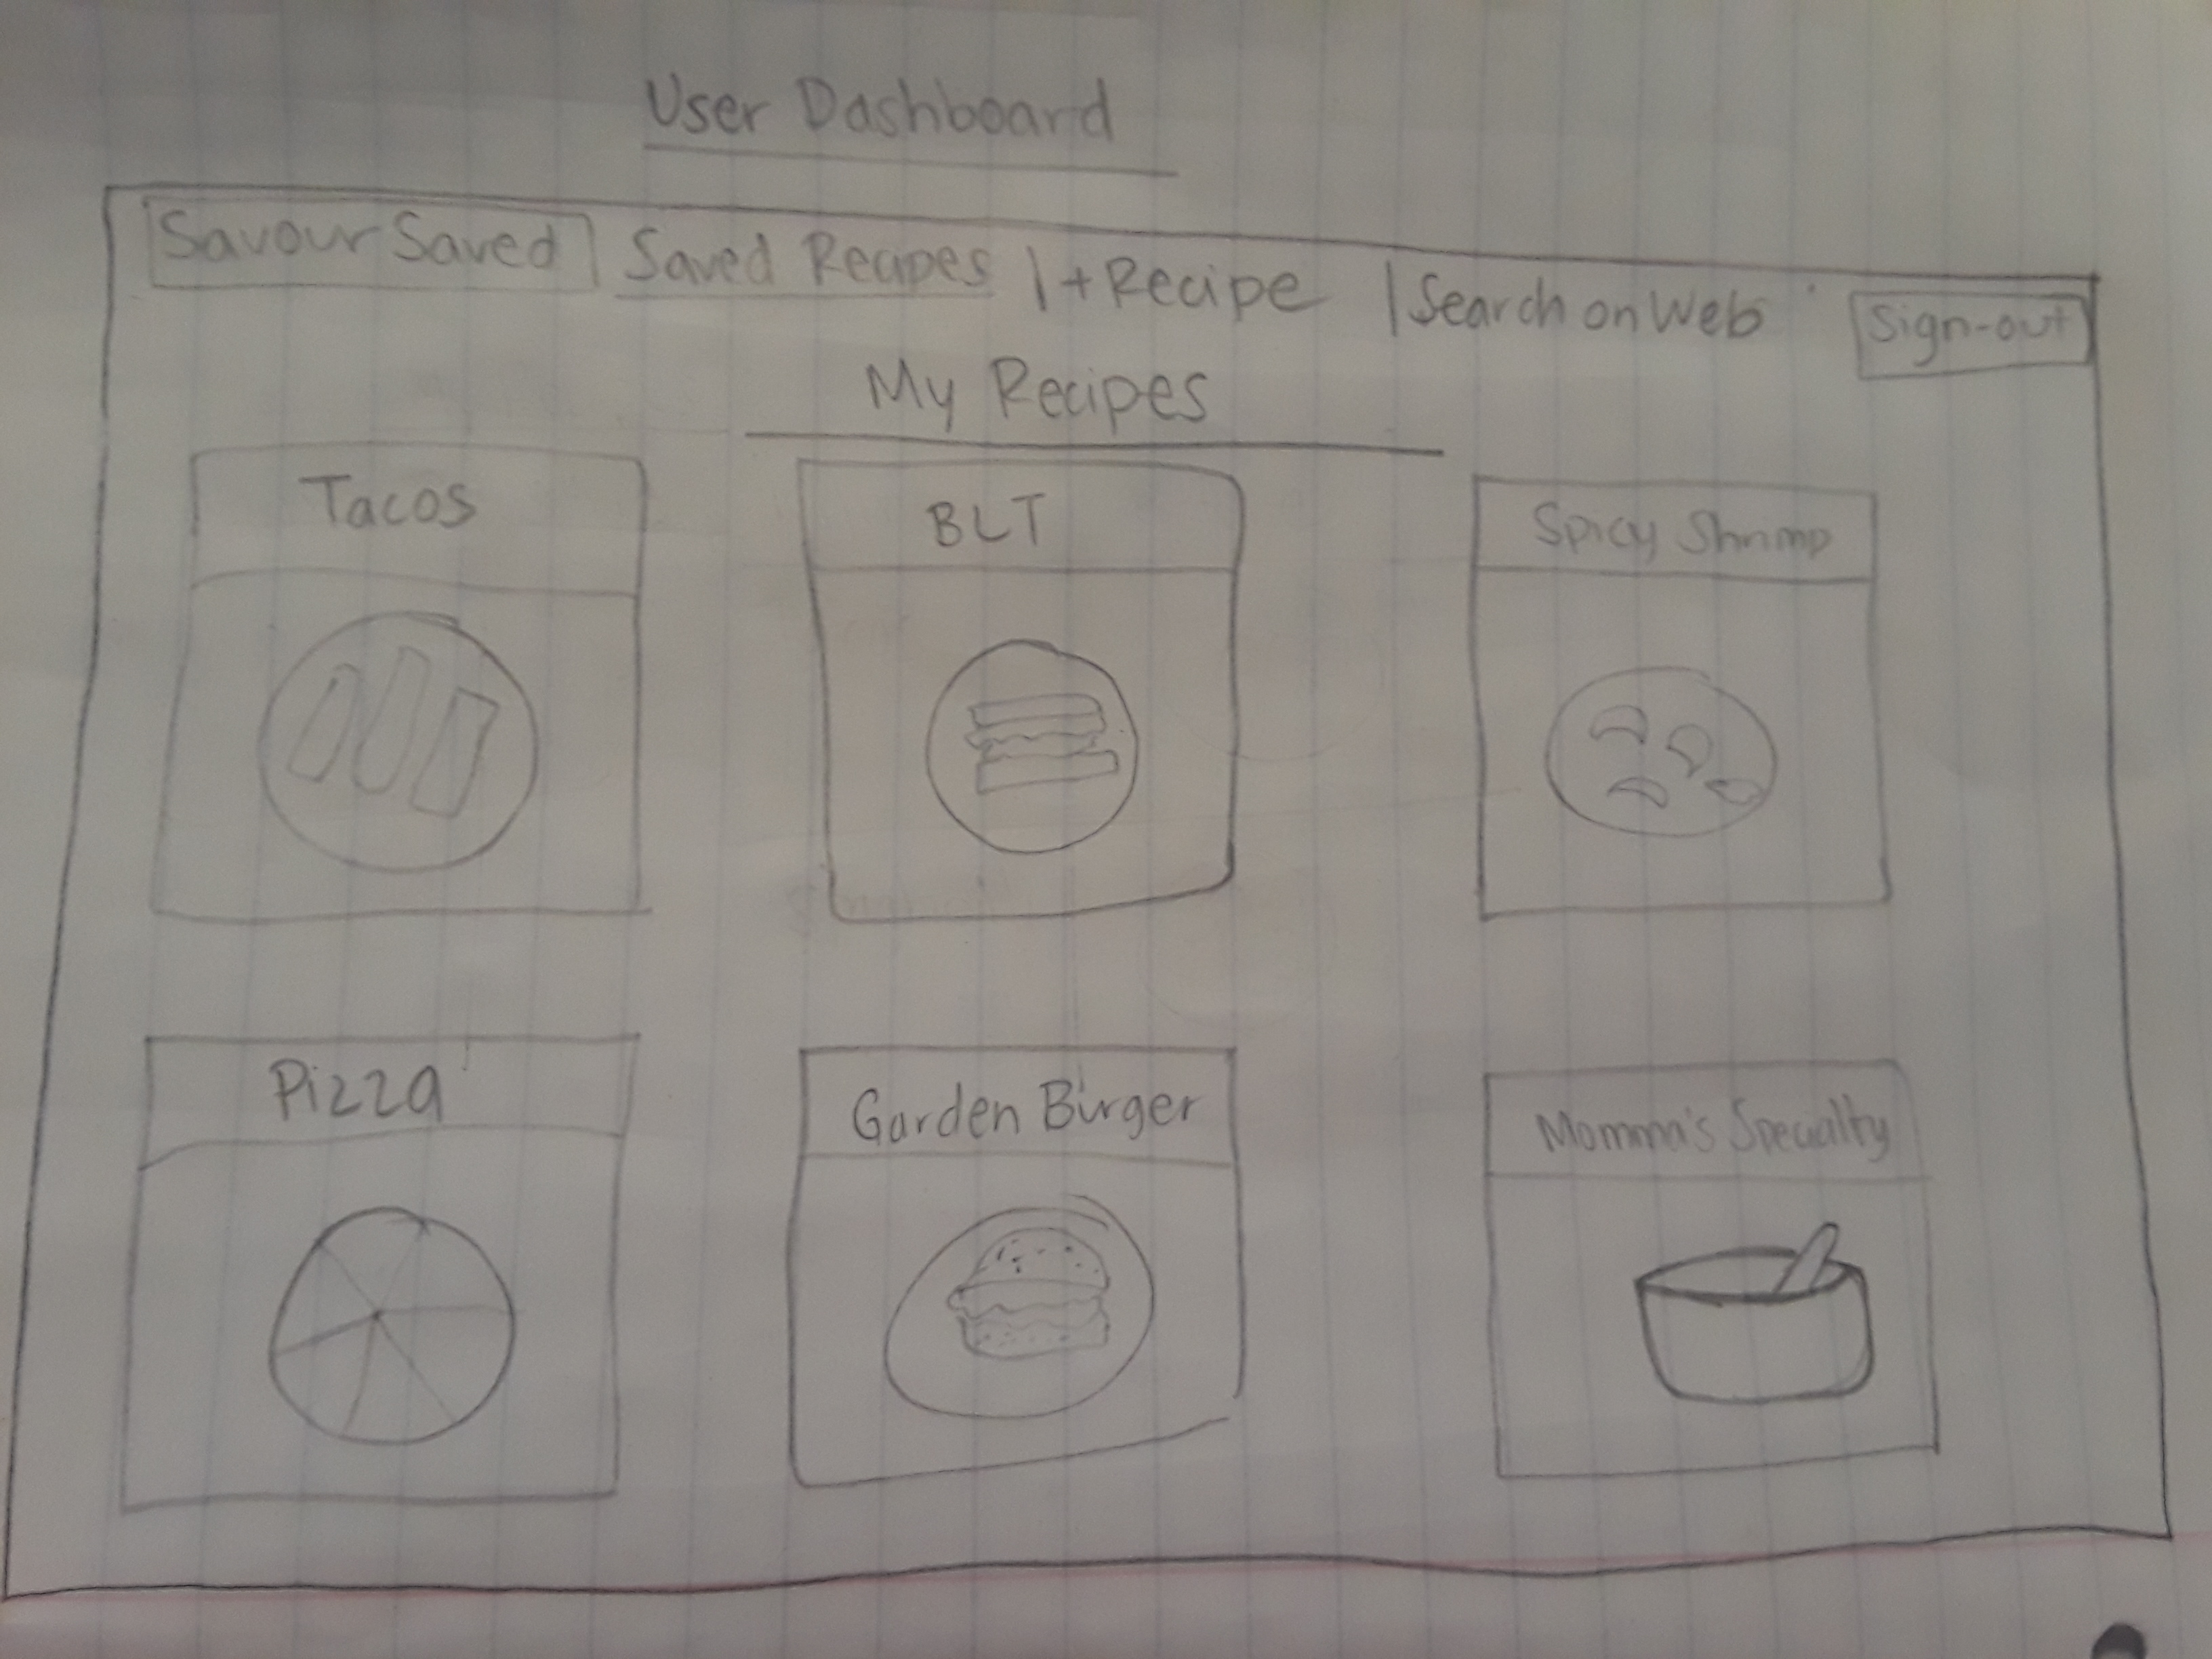 User Dashboard
Savour Saved Saved Recipes | + Recipe | Search on Web Sign-out
My Recipes
Tacos BLT Spicy Shrimp
Pizza Garden Burger Momma's Specialty